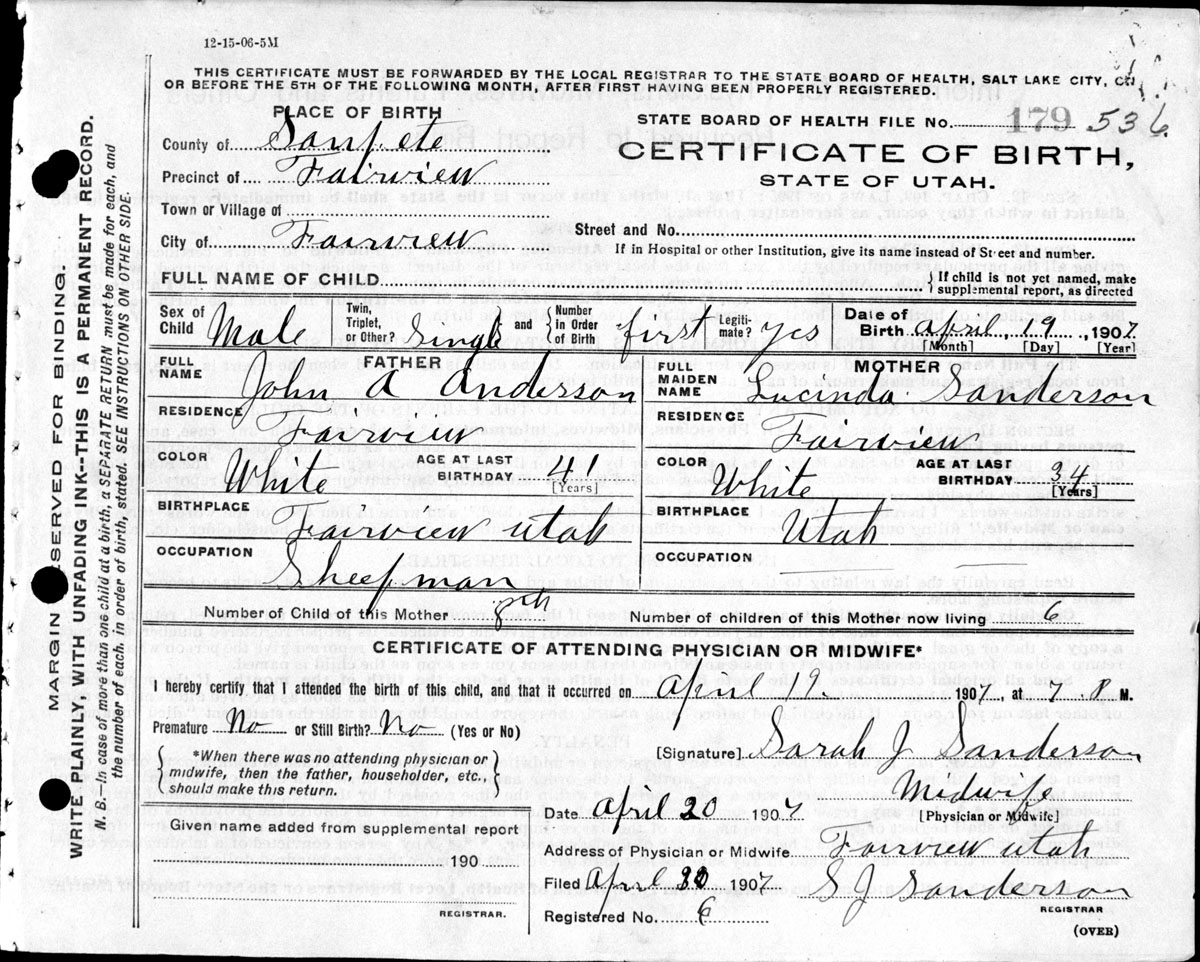 12-15-06-5M
THIS CERTIFICATE MUST BE FORWARDED BY THE LOCAL REGISTRAR TO THE STATE BOARD OF HEALTH, SALT LAKE CITY, ON
OR BEFORE THE 5TH OF THE FOLLOWING MONTH, AFTER FIRST HAVING BEEN PROPERLY REGISTERED.
PLACE OF BIRTH
STATE BOARD OF HEALTH FILE No. 179 536
County of Sanpete
CERTIFICATE OF BIRTH,
Precinct of Fairview
STATE OF UTAH.
Town or Village of
Street and No.
City of Fairview
If in Hospital or other Institution, give its name instead of Street and number.
FULL NAME OF CHILD
If child is not yet named, make
supplemental report, as directed
Sex of Child Male Twin, Triplet, or Other? Single and Number in Order of Birth first Legiti-mate? yes Date of Birth April 19 1907
[Month] [Day] [Year]
FATHER
FULL NAME John A Anderson
RESIDENCE Fairview
COLOR White AGE AT LAST BIRTHDAY 41
[Years]
BIRTHPLACE Fairview Utah
OCCUPATION Sheepman
MOTHER
FULL MAIDEN NAME Lucinda Sanderson
RESIDENCE Fairview
COLOR White AGE AT LAST BIRTHDAY 34
[Years]
BIRTHPLACE Utah
OCCUPATION
Number of Child of this Mother 8th Number of children of this Mother now living 6
CERTIFICATE OF ATTENDING PHYSICIAN OR MIDWIFE*
I hereby certify that I attended the birth of this child, and that it occurred on April 19. 1907, at 7 M.
Premature No or Still Birth? No (Yes or No)
[Signature] Sarah J Sanderson
*When there was no attending physician or
midwife, then the father, householder, etc.,
should make this return.
Midwife
[Physician or Midwife]
Date April 20 1907
Given name added from supplemental report
190
REGISTRAR.
Address of Physician or Midwife Fairview Utah
Filed April 1907 S J Sanderson
REGISTRAR
Registered No. 6
(OVER)
MARGIN RESERVED FOR BINDING.
WRITE PLAINLY, WITH UNFADING INK--THIS IS A PERMANENT RECORD.
N. B. In case of more than one child at a birth, a SEPARATE RETURN must be made for each, and
the number of each, in order of birth, stated. SEE INSTRUCTIONS ON OTHER SIDE.